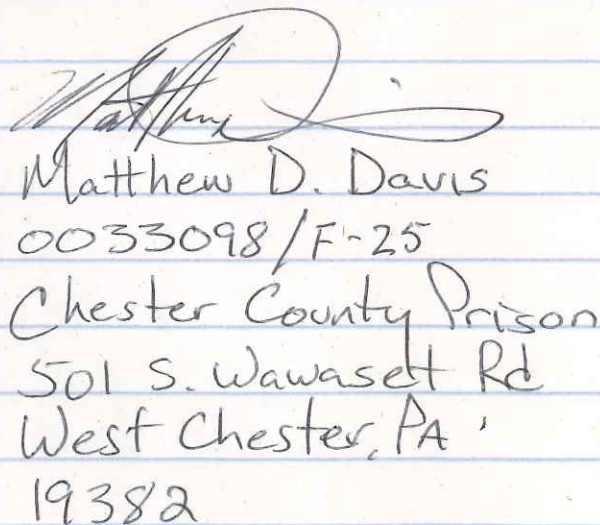 Matthew Davis
Matthew D. Davis
0033098/F-25
Chester County Prison
501 S. Wawasett Rd
West Chester, PA
19382